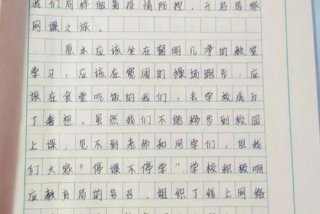 我们同样做着疫情防控，开启居家
网课之旅。
原本应该坐在窗明几净的教室
学习，应该在宽阔的操场跑步，应
该在食堂吃饭的我们，去学校成为
了奢想。虽然我们不能够步到校园
上课，见不到老师和同学们，但我
们大家“停课不停学”学校积极响
应教育局的号召，组织了线上网络